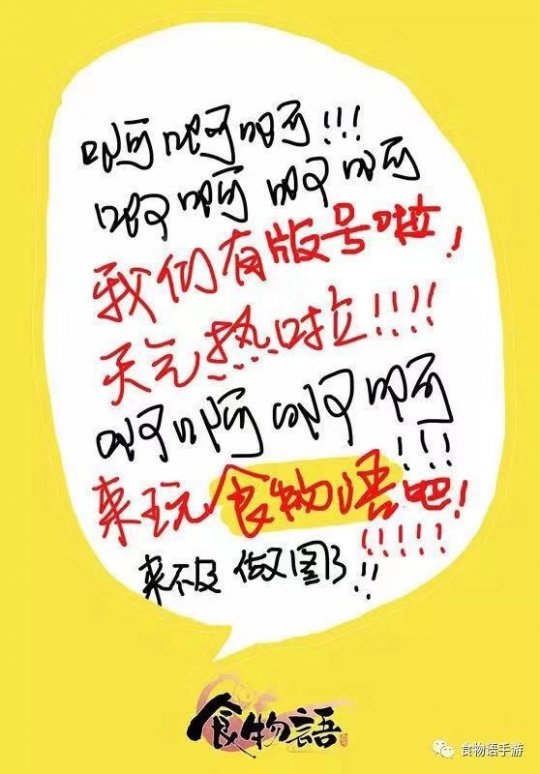 啊啊啊!!!
啊啊啊啊
我们有版号啦!
天气热啦!!!!
啊啊啊啊!!!
来玩食物语吧!!!!!!
来不及做图了!!
食物語
食物语手游